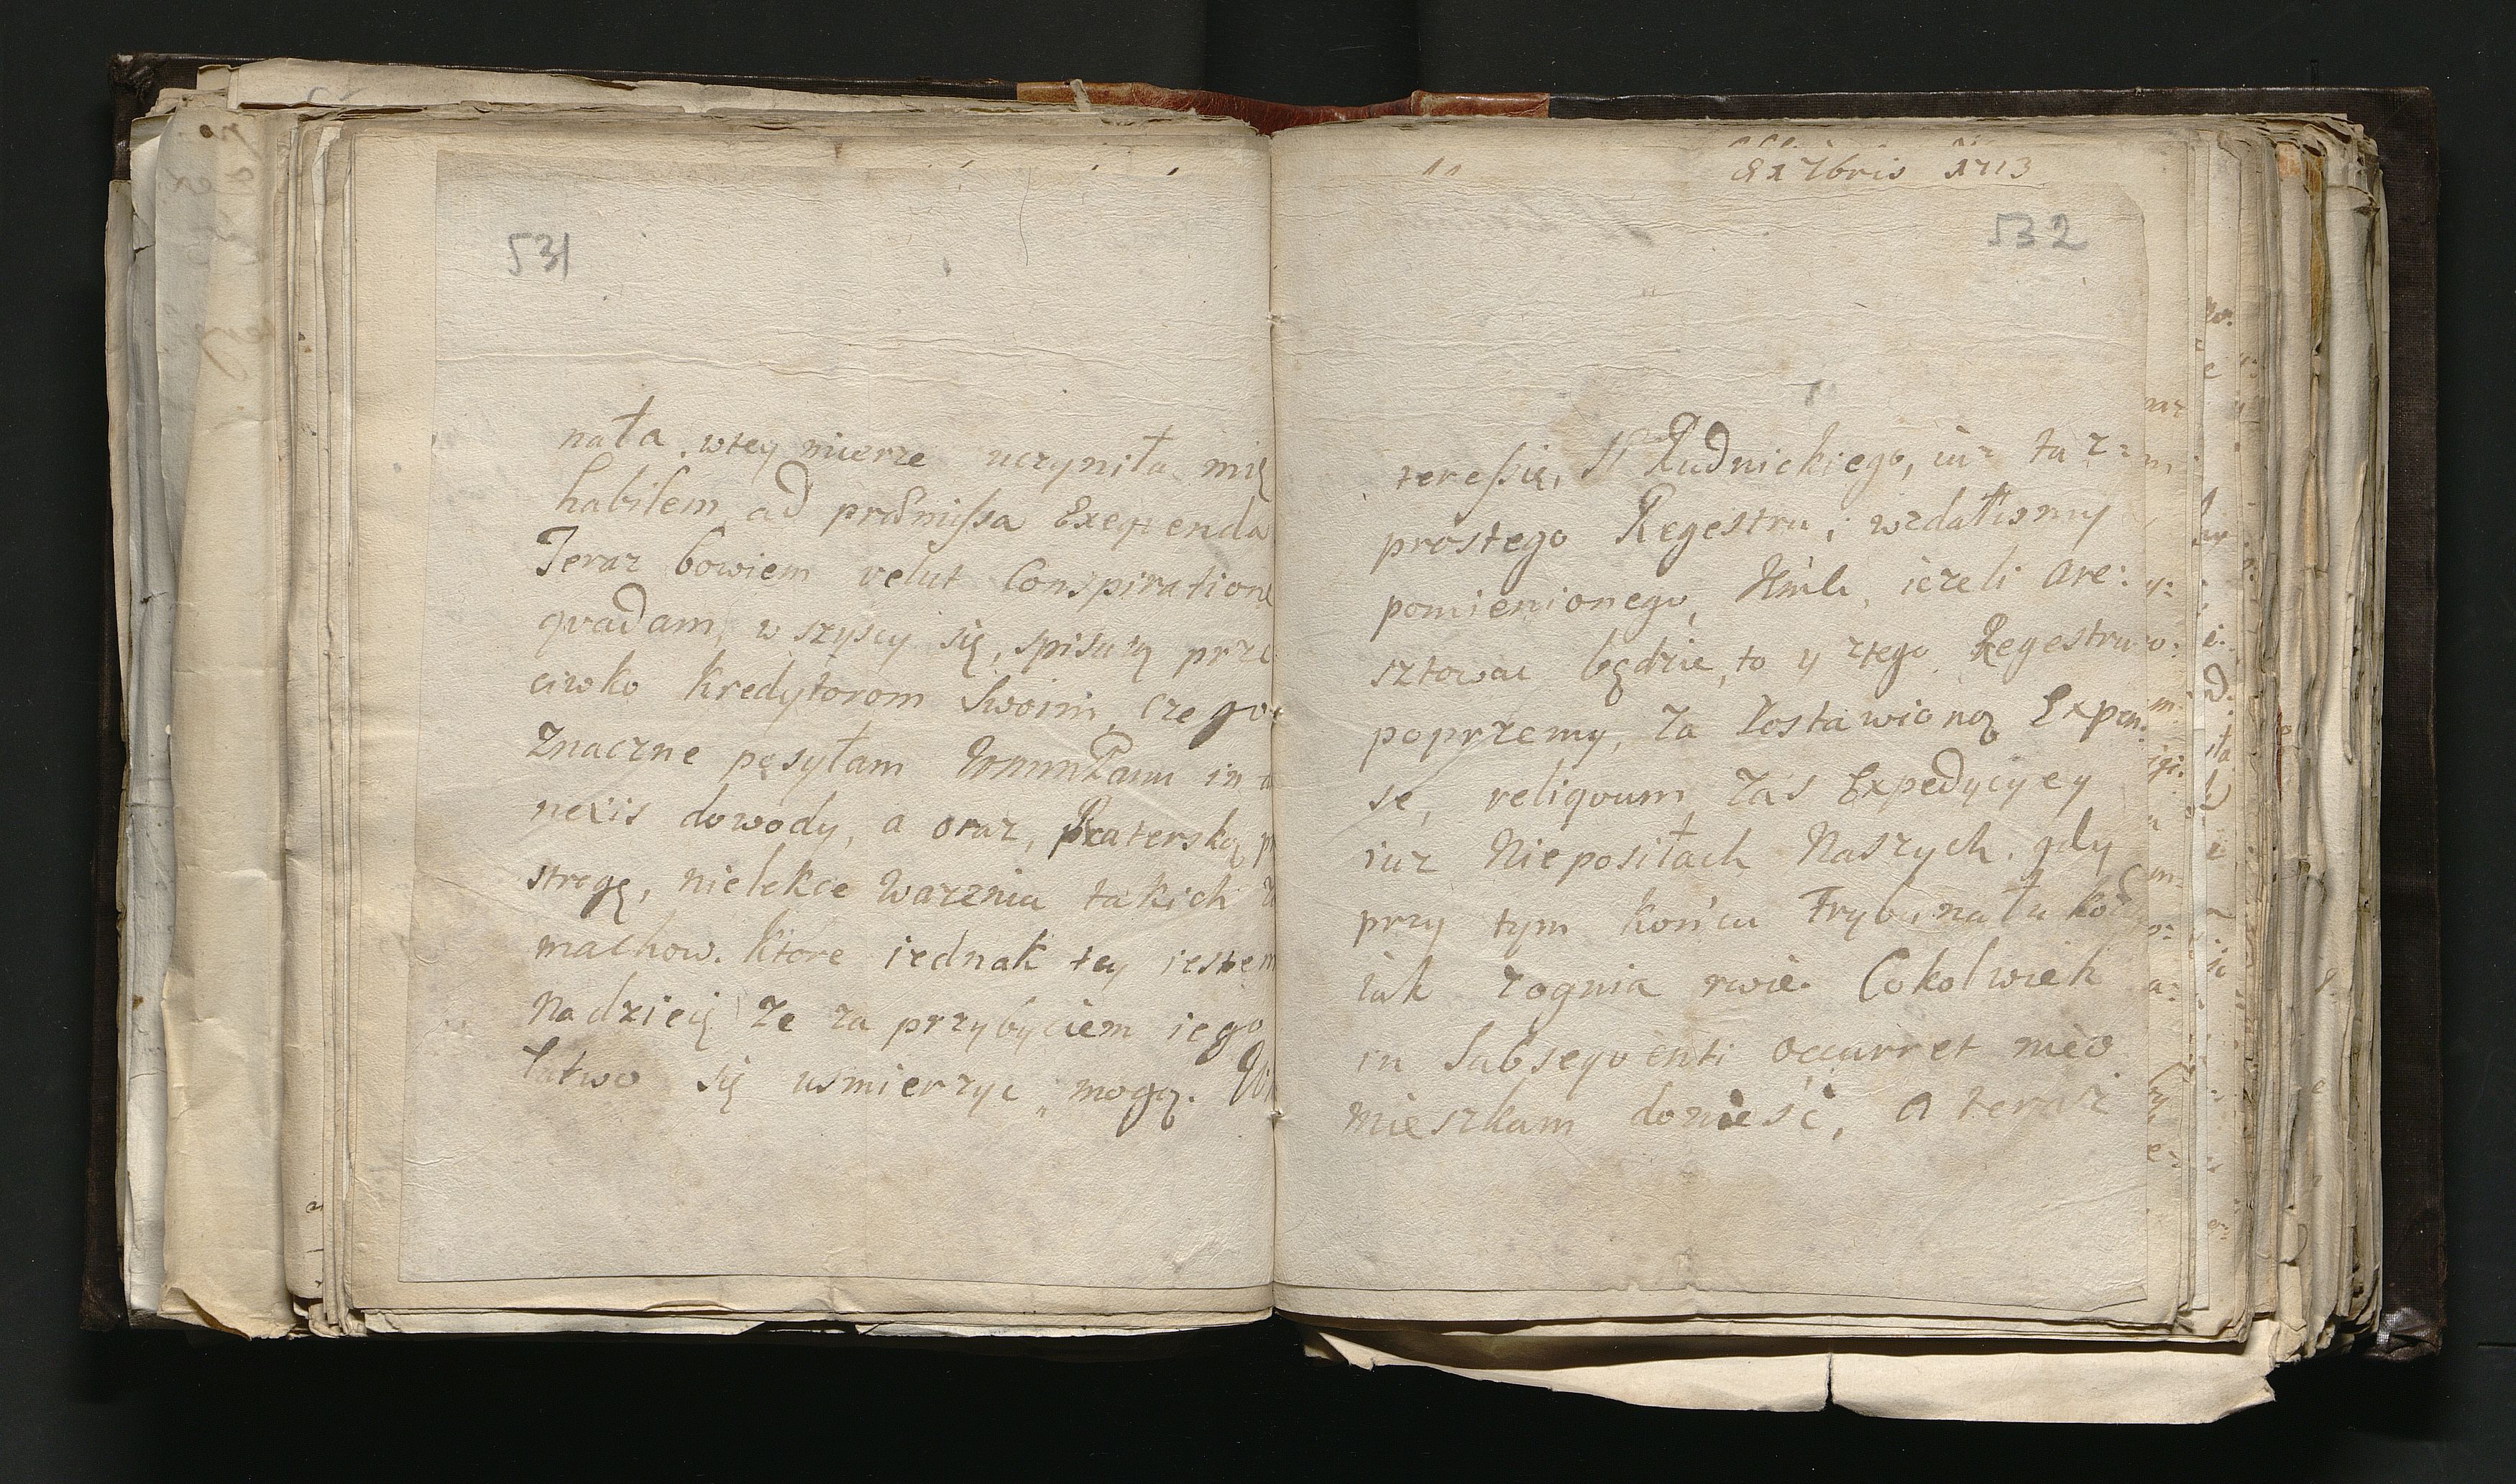 531
nała, wtey mierze uczyniła mię
habilem ad præmissa Exeqvenda
Teraz bowiem velut Conspiratione
qvadam, wszyscy się, spisuią prze
ciwko Kredytorom Swoim, czego
Znaczne posyłam Panu in a
nexis dowody, a oraz, Braterską p
strogę, nielekce Warzenia takich
machow. Ktore iednak tey iestem
Nadzieię Ze za przybyciem iego
łatwo się usmierzyc mogą.
8bris 1713
532
teressie, P Rudnickiego, iuz tu z:
prostego Regestru, wzdalismy
pomienionego, iezeli are:
sztowac będzie, to y ztego Regestru
poprzemy, za Zostawioną Expen:
se, reliqvum zas Expedycyey
iuz Nieposiłach Naszych, gdy
przy tym Końcu Trybunału
iak zognia rwie. Cokolwiek
in Subseqventi occurret nieo
mieszkam donieść, A teraz